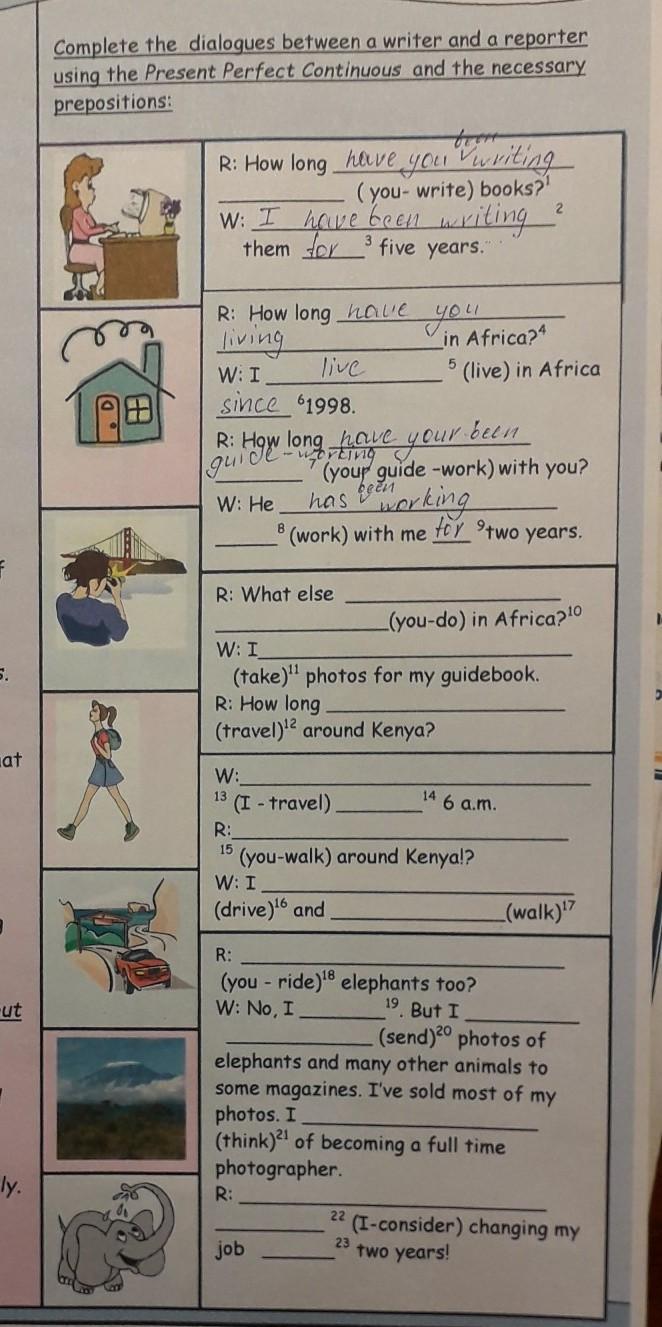 Complete the dialogues between a writer and a reporter
using the Present Perfect Continuous and the necessary
prepositions:
been
R: How long have you writing
____________ ( you- write) books?¹
W: I have been writing ²
them for ³ five years.
R: How long have you
living in Africa?⁴
W: I live ⁵ (live) in Africa
since ⁶1998.
R: How long have your been
guide-working
________ ⁷ (your guide -work) with you?
been
W: He has working
______⁸ (work) with me for ⁹two years.
R: What else ____________________
________________(you-do) in Africa?¹⁰
W: I______________________________
(take)¹¹ photos for my guidebook.
R: How long ______________________
(travel)¹² around Kenya?
W:__________________________________
¹³ (I - travel) ________¹⁴ 6 a.m.
R:________________________________
¹⁵ (you-walk) around Kenya!?
W: I ______________________________
(drive)¹⁶ and ________________(walk)¹⁷
R: ______________________________
(you - ride)¹⁸ elephants too?
W: No, I ________¹⁹. But I __________
______________ (send)²⁰ photos of
elephants and many other animals to
some magazines. I've sold most of my
photos. I ______________________
(think)²¹ of becoming a full time
photographer.
R: ____________________________
__________ ²² (I-consider) changing my
job _______²³ two years!
f
s.
at
ut
ly.